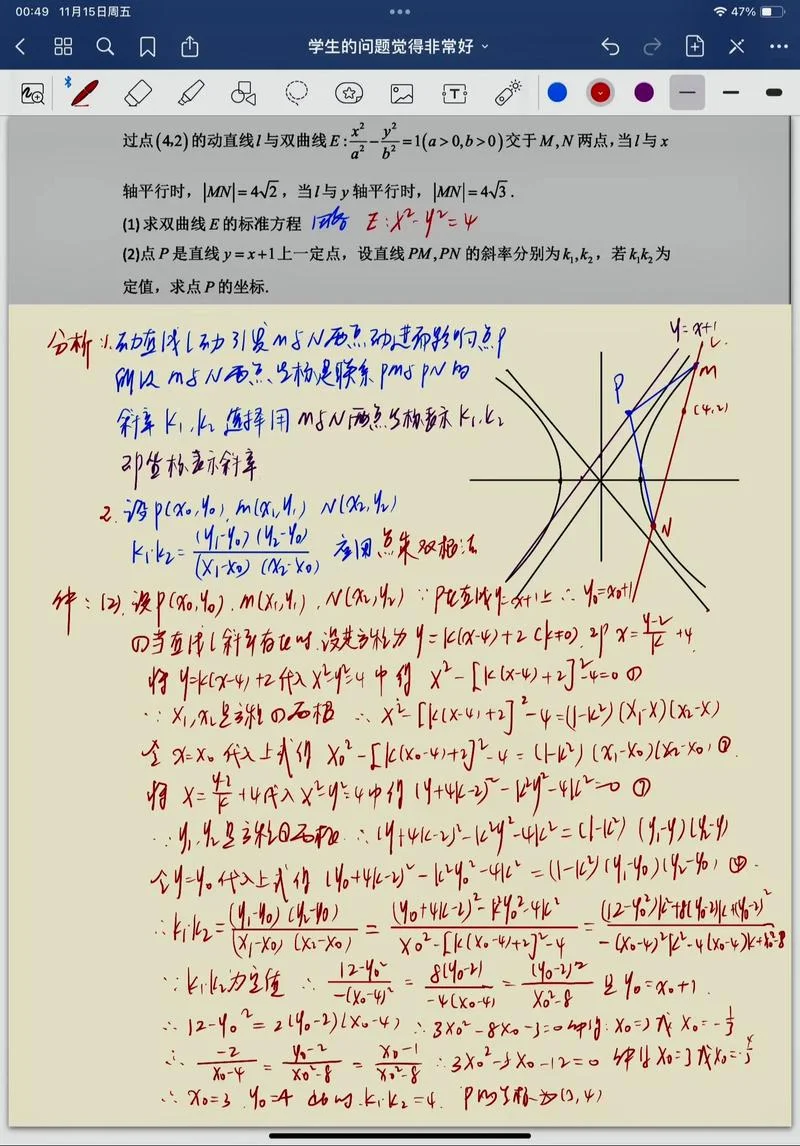 00:49 11月15日周五
47%
学生的问题觉得非常好
过点(4,2)的动直线l与双曲线E:x²/a²-y²/b²=1(a>0,b>0)交于M,N两点,当l与x
轴平行时,|MN|=4√2,当l与y轴平行时,|MN|=4√3.
(1)求双曲线E的标准方程 回答 E:x²-y²=4
(2)点P是直线y=x+1上一定点,设直线PM,PN的斜率分别为k₁,k₂,若k₁k₂为
定值,求点P的坐标.
分析:1.动直线l动引发M与N两点动进而影响点P
所以M与N两点坐标是联系PM与PN的
斜率k₁,k₂ 选择用M与N两点坐标表示k₁,k₂
即坐标表示斜率
2.设P(x₀,y₀),M(x₁,y₁) N(x₂,y₂)
k₁·k₂=(y₁-y₀)(y₂-y₀)/(x₁-x₀)(x₂-x₀) 应用点乘双根法
y=x+1
L
M
P
(4,2)
N
解:(2).设P(x₀,y₀).M(x₁,y₁).N(x₂,y₂) ∵P在直线y=x+1上∴y₀=x₀+1
①当直线l斜率存在时,设其方程为y=k(x-4)+2(k≠0),即x=(y-2)/k+4
将y=k(x-4)+2代入x²-y²=4中得 x²-[k(x-4)+2]²-4=0 ①
∵x₁,x₂是方程①两根 ∴x²-[k(x-4)+2]²-4=(1-k²)(x₁-x)(x₂-x)
令x=x₀代入上式得 x₀²-[k(x₀-4)+2]²-4=(1-k²)(x₁-x₀)(x₂-x₀)②
将x=(y-2)/k+4代入x²-y²=4中得(y+4k-2)²-k²y²-4k²=0 ③
∵y₁,y₂是方程③两根∴(y+4k-2)²-k²y²-4k²=(1-k²)(y₁-y)(y₂-y)
令y=y₀代入上式得(y₀+4k-2)²-k²y₀²-4k²=(1-k²)(y₁-y₀)(y₂-y₀)④.
∴k₁·k₂=(y₁-y₀)(y₂-y₀)/(x₁-x₀)(x₂-x₀)=((y₀+4k-2)²-k²y₀²-4k²)/(x₀²-[k(x₀-4)+2]²-4)=((12-y₀²)k²+8(y₀-2)k+(y₀-2)²)/(-(x₀-4)²k²-4(x₀-4)k+x₀²-8)
∵k₁·k₂为定值 ∴(12-y₀²)/(-(x₀-4)²)=8(y₀-2)/(-4(x₀-4))=(y₀-2)²/(x₀²-8) 且y₀=x₀+1.
∴12-y₀²=2(y₀-2)(x₀-4) ∴3x₀²-8x₀-3=0解得:x₀=3或x₀=-1/3
∴-2/(x₀-4)=(y₀-2)/(x₀²-8)=(x₀-1)/(x₀²-8) ∴3x₀²-5x₀-12=0 解得x₀=3或x₀=-4/3
∴x₀=3 y₀=4 此时.k₁·k₂=4. P的坐标为(3,4)